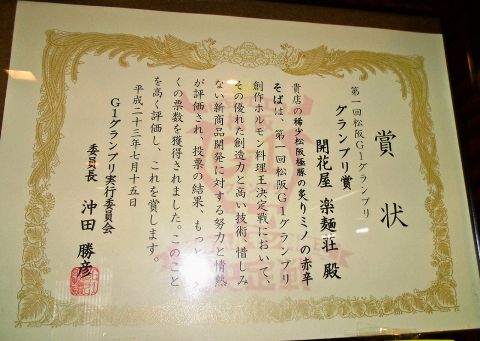 賞状
第一回松阪G1グランプリ
グランプリ賞
開花屋 楽麺荘 殿
貴店の稀少松阪極豚の炙りミノの赤辛
そばは、第一回松阪G1グランプリ
創作ホルモン料理王決定戦において、
その優れた創造力と高い技術、惜しみ
ない新商品開発に対する努力と情熱
が評価され、投票の結果、もっと
くの票数を獲得されました。このこと
を高く評価し、これを賞します。
平成二十三年七月十五日
G1グランプリ実行委員会
委員長 沖田 勝彦